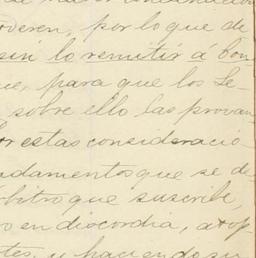 orderen, por lo que de
sin lo remitir á bon
ue, para que los Se
sobre ello las provan
Por estas consideracio
ndamentos que se de
árbitro que suscribe,
o en discordia, adop
tes, y haciendo su